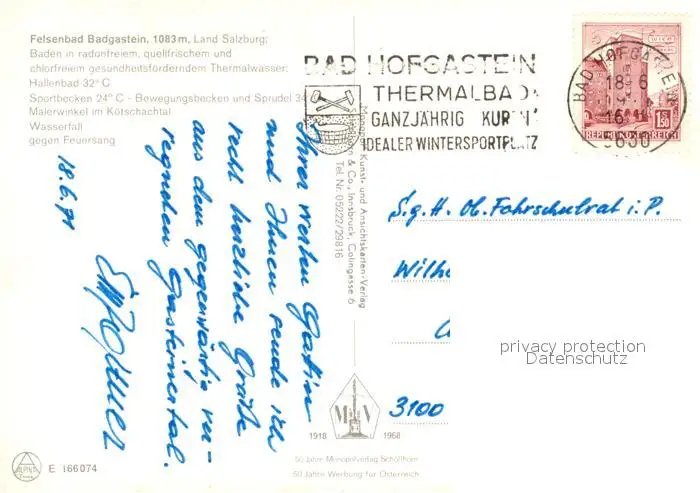 Felsenbad Badgastein, 1083 m, Land Salzburg:
Baden in radonfreiem, quellfrischem und
chlorfreiem gesundheitsförderndem Thermalwasser:
Hallenbad 32° C
Sportbecken 24° C - Bewegungsbecken und Sprudel 34
Malerwinkel im Kötschachtal
Wasserfall
gegen Feuersang
BAD HOFGASTEIN
THERMALBAD
GANZJÄHRIG KUR
IDEALER WINTERSPORTPLATZ
BAD HOFGASTEIN
18.-6
16
5630
REPUBLIK ÖSTERREICH
1.50
Kunst- und Ansichtskarten-Verlag
& Co., Innsbruck, Colingasse 6
Tel. Nr. 05222/29816
Ihrer werten Gattin
und Ihnen sende ich
recht herzliche Grüße
aus dem gegenwärtig ver-
regneten Gasteinertal.
18.6.71
S.g.H. Ob. Fahrschulrat i. P.
Wilhe
3100
privacy protection
Datenschutz
M V
1918 1968
50 Jahre Monopolverlag Schöllhorn
50 Jahre Werbung für Österreich
ALPINE
E 166074